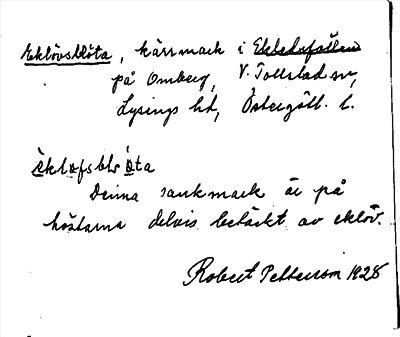 Eklövsblöta, kärrmark i
på Omberg, V. Tollstad sn,
Lysings hd, Östergötl. l.
èklꜵfsblꜵta
Denna sankmark är på
höstarna delvis betäckt av eklöv.
Robert Pettersson 1928